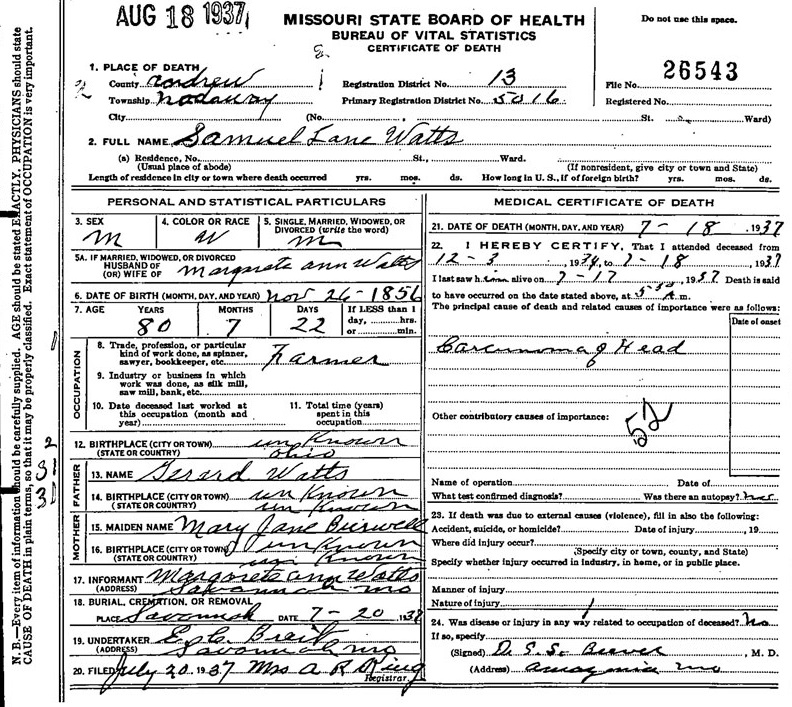 AUG 18 1937
MISSOURI STATE BOARD OF HEALTH
BUREAU OF VITAL STATISTICS
CERTIFICATE OF DEATH
Do not use this space.
1. PLACE OF DEATH
County Andrew
Registration District No. 13
26543
File No.
Township Nodaway
Primary Registration District No. 5016
Registered No.
City (No. St. Ward)
2. FULL NAME Samuel Lane Watts
(a) Residence, No. St., Ward.
(Usual place of abode) (If nonresident, give city or town and State)
Length of residence in city or town where death occurred yrs. mos. ds. How long in U. S., if of foreign birth? yrs. mos. ds.
PERSONAL AND STATISTICAL PARTICULARS
3. SEX M
4. COLOR OR RACE W
5. SINGLE, MARRIED, WIDOWED, OR DIVORCED (write the word) m
5A. IF MARRIED, WIDOWED, OR DIVORCED
HUSBAND OF
(OR) WIFE OF Margrete Ann Watts
6. DATE OF BIRTH (MONTH, DAY, AND YEAR) Nov 26-1856
7. AGE YEARS MONTHS DAYS If LESS than 1
80 7 22 day, hrs.
or min.
OCCUPATION
8. Trade, profession, or particular
kind of work done, as spinner,
sawyer, bookkeeper, etc. Farmer
9. Industry or business in which
work was done, as silk mill,
saw mill, bank, etc.
10. Date deceased last worked at
this occupation (month and
year)
11. Total time (years)
spent in this
occupation
12. BIRTHPLACE (CITY OR TOWN) unknown
(STATE OR COUNTRY) Ohio
FATHER
13. NAME Gerard Watts
14. BIRTHPLACE (CITY OR TOWN) unknown
(STATE OR COUNTRY) unknown
MOTHER
15. MAIDEN NAME Mary Jane Burwell
16. BIRTHPLACE (CITY OR TOWN) unknown
(STATE OR COUNTRY) unknown
17. INFORMANT Margrete Ann Watts
(ADDRESS) Savannah Mo
18. BURIAL, CREMATION, OR REMOVAL
PLACE Savannah DATE 7-20 1937
19. UNDERTAKER Breit
(ADDRESS) Savannah Mo
20. FILED July 20, 1937 Mrs A R King
Registrar.
MEDICAL CERTIFICATE OF DEATH
21. DATE OF DEATH (MONTH, DAY, AND YEAR) 7-18, 1937
22. I HEREBY CERTIFY, That I attended deceased from
12-3, 1934, to 7-18, 1937
I last saw him alive on 7-17, 1937 Death is said
to have occurred on the date stated above, at m.
The principal cause of death and related causes of importance were as follows:
Date of onset
Carcinoma of Head
Other contributory causes of importance:
52
Name of operation Date of
What test confirmed diagnosis? Was there an autopsy? no
23. If death was due to external causes (violence), fill in also the following:
Accident, suicide, or homicide? Date of injury, 19
Where did injury occur?
(Specify city or town, county, and State)
Specify whether injury occurred in industry, in home, or in public place.
Manner of injury
Nature of injury
24. Was disease or injury in any way related to occupation of deceased? No
If so, specify
(Signed) , M. D.
(Address) Amazonia Mo
N. B.—Every item of information should be carefully supplied. AGE should be stated EXACTLY. PHYSICIANS should state
CAUSE OF DEATH in plain terms, so that it may be properly classified. Exact statement of OCCUPATION is very important.